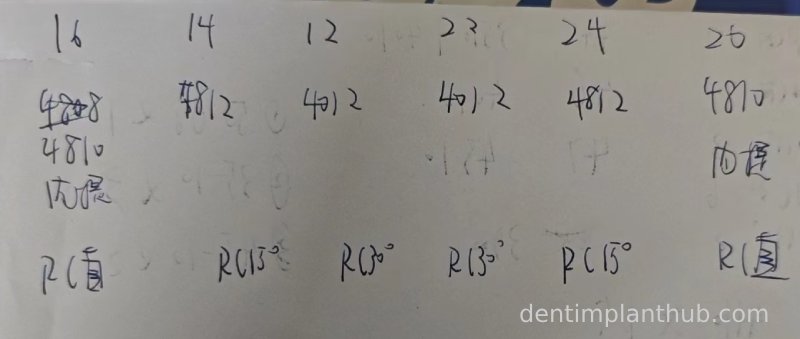 16 14 12 23 24 26
4812 4012 4012 4812 4810
4810 内提
内提
RC直 RC15° RC30° RC30° RC15° RC直
dentimplanthub.com